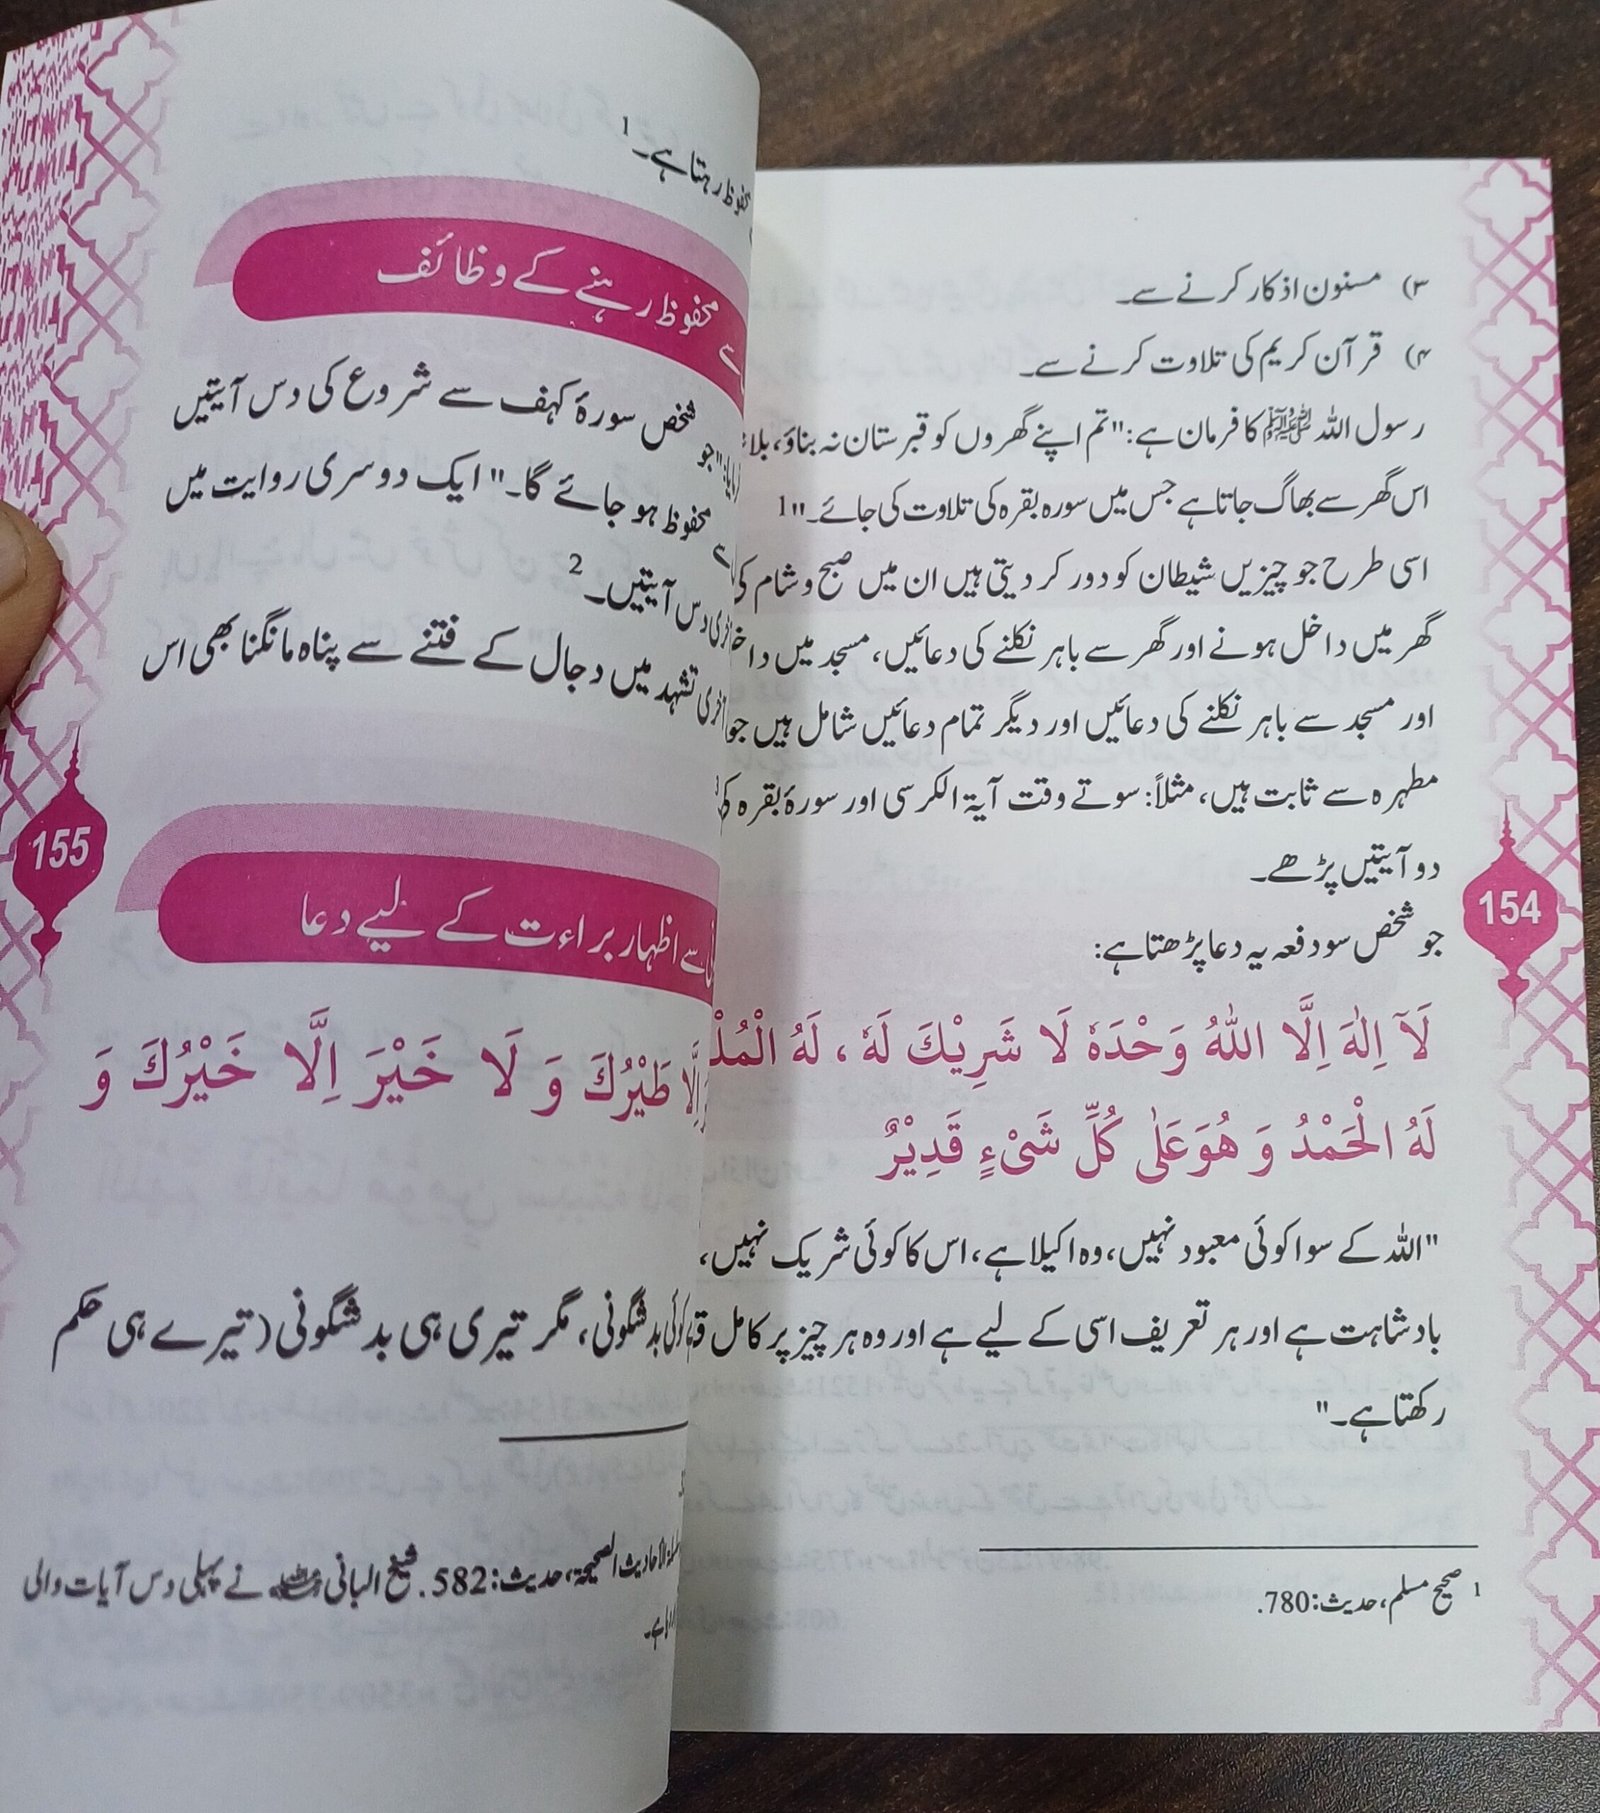 ۳) مسنون اذکار کرنے سے۔
۴) قرآن کریم کی تلاوت کرنے سے۔
رسول اللہ ﷺ کا فرمان ہے: "تم اپنے گھروں کو قبرستان نہ بناؤ، بلا
اس گھر سے بھاگ جاتا ہے جس میں سورہ بقرہ کی تلاوت کی جائے۔" 1
اسی طرح جو چیزیں شیطان کو دور کر دیتی ہیں ان میں صبح و شام کی
گھر میں داخل ہونے اور گھر سے باہر نکلنے کی دعائیں، مسجد میں
اور مسجد سے باہر نکلنے کی دعائیں اور دیگر تمام دعائیں شامل ہیں جو
مطہرہ سے ثابت ہیں، مثلاً: سوتے وقت آیۃ الکرسی اور سورۂ بقرہ
دو آیتیں پڑھے۔
جو شخص سو دفعہ یہ دعا پڑھتا ہے:
لَآ اِلٰهَ اِلَّا اللّٰهُ وَحْدَهٗ لَا شَرِيْكَ لَهٗ ، لَهُ
لَهُ الْحَمْدُ وَ هُوَ عَلٰى كُلِّ شَىْءٍ قَدِيْرٌ
"اللہ کے سوا کوئی معبود نہیں، وہ اکیلا ہے، اس کا کوئی شریک نہیں،
بادشاہت ہے اور ہر تعریف اسی کے لیے ہے اور وہ ہر چیز پر کامل
رکھتا ہے۔"
1 صحیح مسلم، حدیث: 780.
154
محفوظ رہتا ہے۔ 1
سے محفوظ رہنے کے وظائف
"جو شخص سورۂ کہف سے شروع کی دس آیتیں
سے محفوظ ہو جائے گا۔" ایک دوسری روایت میں
دس آیتیں۔ 2
تشہد میں دجال کے فتنے سے پناہ مانگنا بھی اس
سے اظہار براءت کے لیے دعا
اِلَّا طَيْرُكَ وَ لَا خَيْرَ اِلَّا خَيْرُكَ وَ
کوئی بدشگونی، مگر تیری ہی بدشگونی (تیرے ہی حکم
الاحادیث الصحیحۃ، حدیث: 582. شیخ البانی نے پہلی دس آیات والی
155